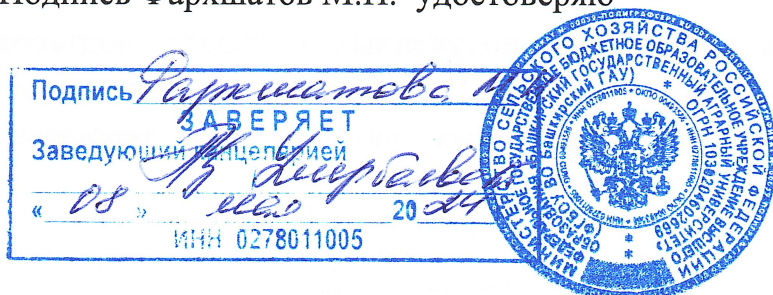 Подпись Фархшатов М.Н. удостоверяю
Подпись Фархшатова М Н
ЗАВЕРЯЕТ
Заведующий канцелярией
« 08 » мая 2024
ИНН 0278011005
МИНИСТЕРСТВО СЕЛЬСКОГО ХОЗЯЙСТВА РОССИЙСКОЙ ФЕДЕРАЦИИ
ФЕДЕРАЛЬНОЕ ГОСУДАРСТВЕННОЕ БЮДЖЕТНОЕ ОБРАЗОВАТЕЛЬНОЕ УЧРЕЖДЕНИЕ ВЫСШЕГО
ОБРАЗОВАНИЯ БАШКИРСКИЙ ГОСУДАРСТВЕННЫЙ АГРАРНЫЙ УНИВЕРСИТЕТ
(ФГБОУ ВО Башкирский ГАУ) * ОГРН 1030204602669